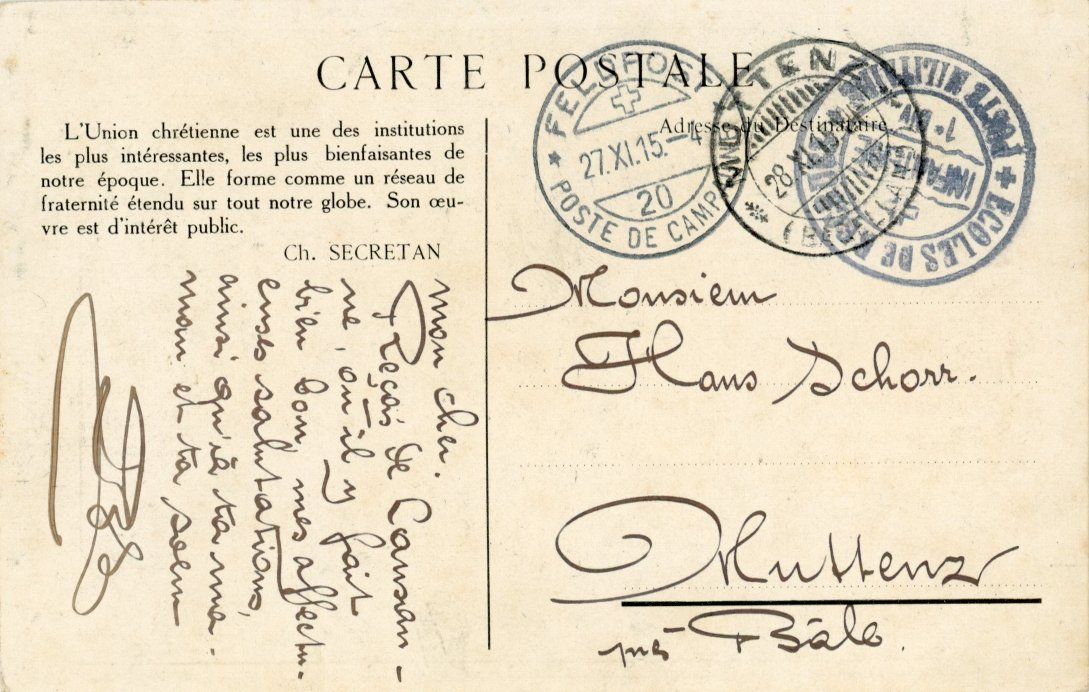 CARTE POSTALE
L'Union chrétienne est une des institutions
les plus intéressantes, les plus bienfaisantes de
notre époque. Elle forme comme un réseau de
fraternité étendu sur tout notre globe. Son œu-
vre est d'intérêt public.
Ch. SECRETAN
mon cher.
Reçois de Lausan-
ne, où il y fait
bien bon, mes affectu-
euses salutations,
ainsi qu'à ta ma-
man et ta soeur
FELDPOST
27.XI.15.-4
20
* POSTE DE CAMPAGNE
MUTTENZ
28.XI.15
(BASELLAND)
POSTE MILITAIRE + ECOLES DE
1e DIV.
INFANTERIE
Adresse du Destinataire
Monsieur
Hans Schorr.
Muttenz
près Bâle.